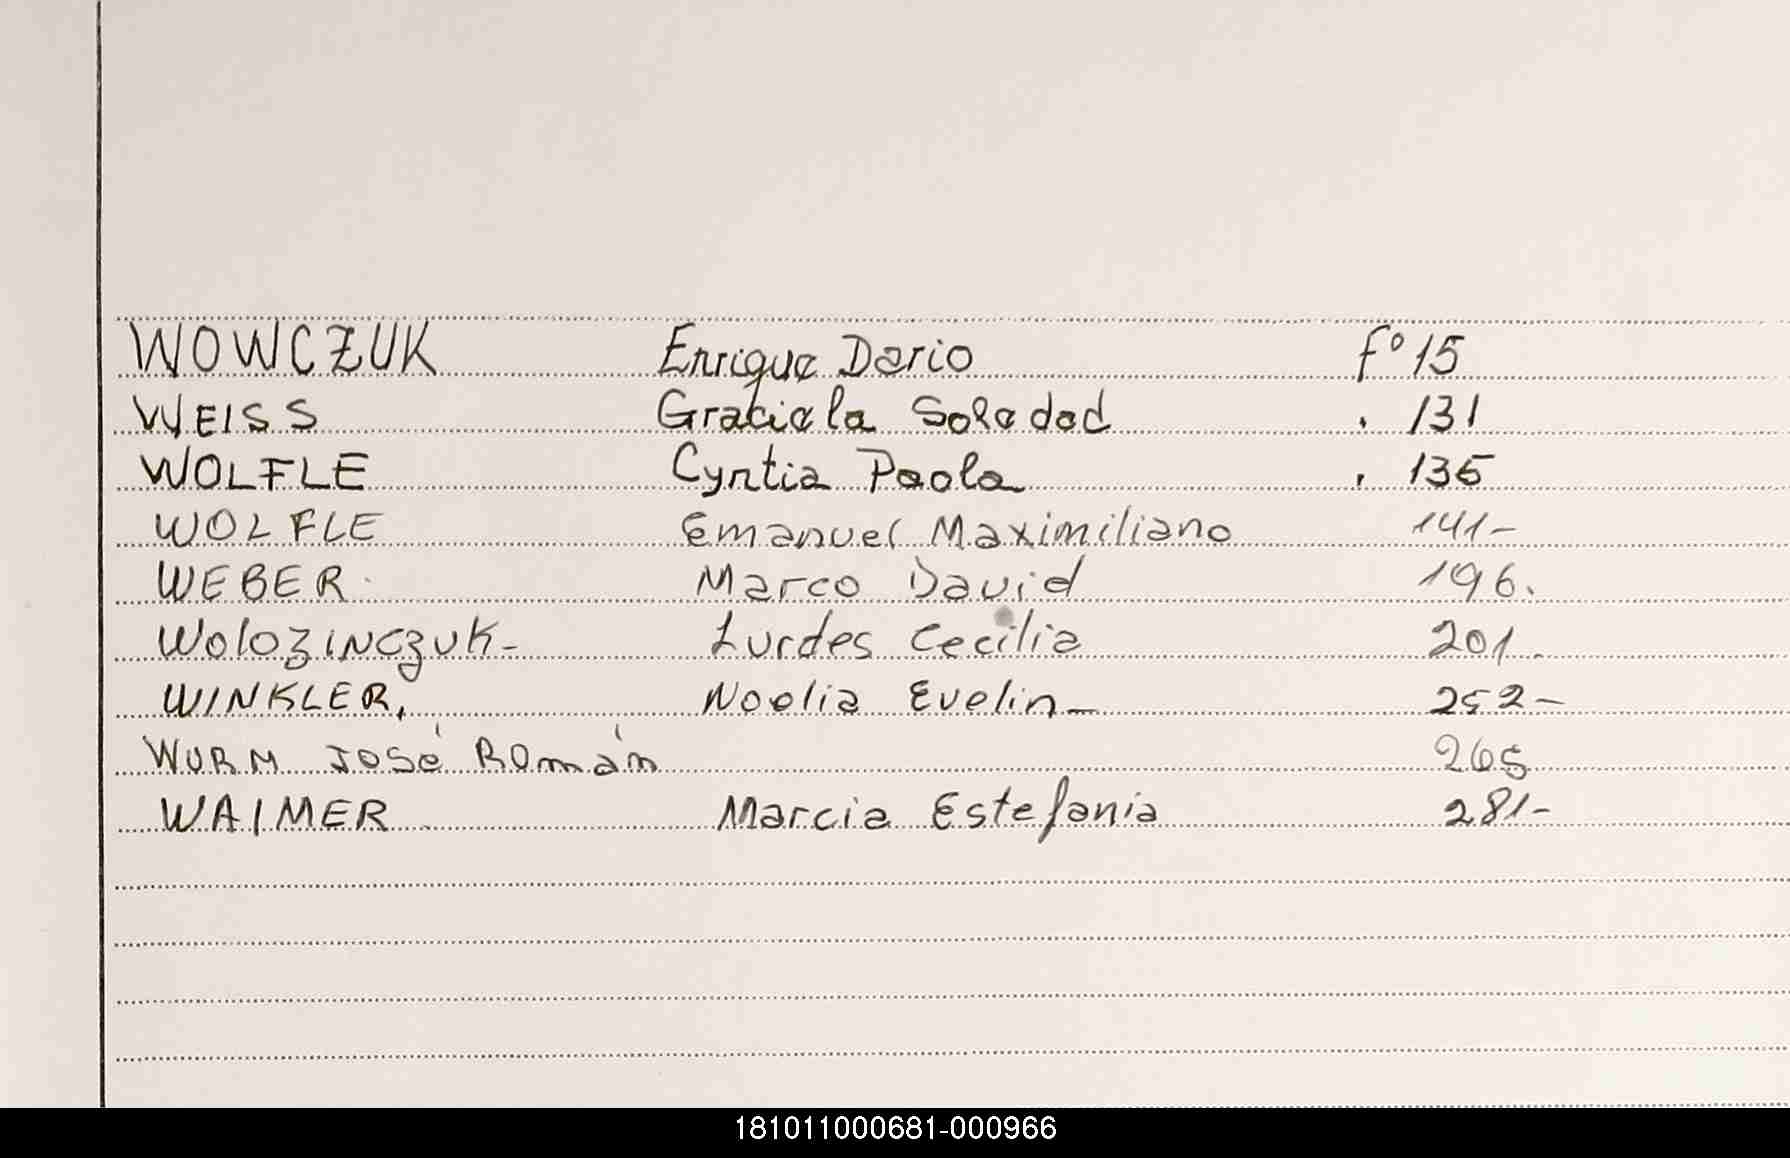 WOWCZUK Enrique Dario fº 15
WEISS Graciela Soledad . 131
WOLFLE Cyntia Paola . 135
WOLFLE Emanuel Maximiliano 141-
WEBER Marco David 196.
WoloZINCZUK- Lurdes Cecilia 201.
WINKLER, Noelia Evelin- 252-
WURM José Román 265
WAIMER Marcia Estefania 281-
181011000681-000966